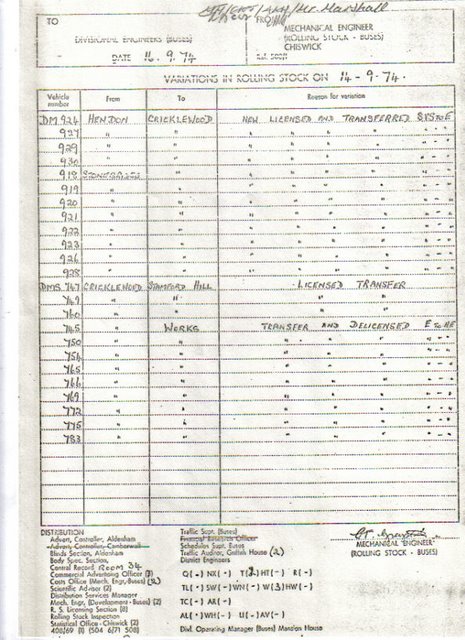 TO
FROM
MECHANICAL ENGINEER
(ROLLING STOCK - BUSES)
CHISWICK
DIVISIONAL ENGINEERS (BUSES)
DATE 16.9.74
VARIATIONS IN ROLLING STOCK ON 14-9-74.
Vehicle number From To Reason for variation
DM 924 HENDON CRICKLEWOOD NEW LICENSED AND TRANSFERRED
927 " " " " " " " - "
929 " " " " " " " - "
930 " " " " " " " - "
918 STONEBRIDGE " " " " " " - "
919 " " " " " " " - "
920 " " " " " " " - "
921 " " " " " " " - "
922 " " " " " " " - "
923 " " " " " " " - "
926 " " " " " " " - "
928 " " " " " " " - "
DMS 747 CRICKLEWOOD STAMFORD HILL LICENSED TRANSFER
749 " " " "
760 " " " "
745 " WORKS TRANSFER AND DELICENSED E to AE
750 " " " " " " - "
754 " " " " " " - "
765 " " " " " " - "
766 " " " " " " - "
769 " " " " " " - "
772 " " " " " " - "
775 " " " " " " - "
783 " " " " " " - "
DISTRIBUTION
Advert. Controller, Aldenham
Advert. Controller, Camberwell
Blinds Section, Aldenham
Body Spec. Section,
Central Record ROOM 34
Commercial Advertising Officer
Costs Office (Mech. Engr. Buses) (2)
Scientific Adviser (2)
Distribution Services Manager
Mech. Engr. (Development - Buses) (2)
R. S. Licensing Section (8)
Rolling Stock Inspection
Statistical Office - Chiswick (2)
408/69 (1) (504 6/71 508)
Traffic Supt. (Buses)
Financial Business Officer
Schedules Supt. Buses
Traffic Auditor, Griffith House (2)
District Engineers
Q( - ) NX( - ) T(2) HT( - ) R( - )
TL( - ) SW( - ) WN( - ) W(3) HW( - )
TC( - ) AR( - )
AL( - ) WH( - ) U( - ) AV( - )
Divl. Operating Manager (Buses) Mansion House
MECHANICAL ENGINEER
(ROLLING STOCK - BUSES)